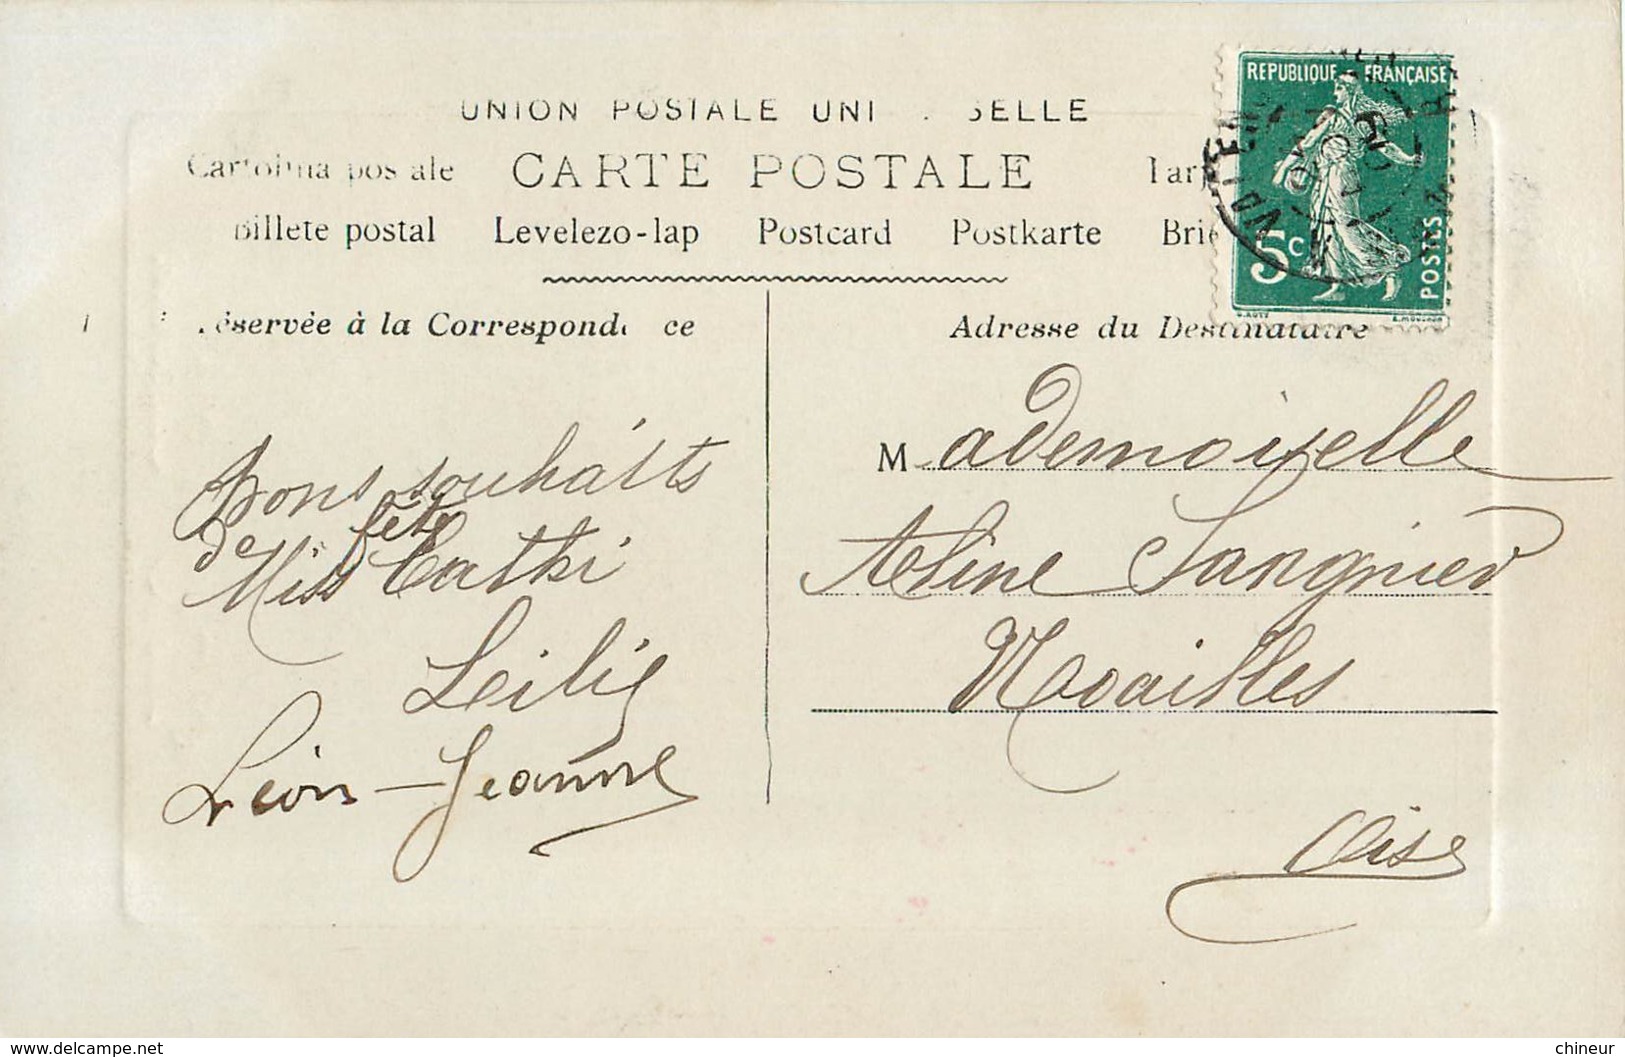 UNION POSTALE UNI . SELLE
Cartolina postale CARTE POSTALE Tarj
Billete postal Levelezo-lap Postcard Postkarte Brie
REPUBLIQUE FRANÇAISE
5c
POSTES
éservée à la Correspond ce
Adresse du Destinataire
Bons souhaits
de fête
Miss Cathi
Leilie
Léon - Jeanne
Mademoiselle
Aline Sangnier
Noailles
Oise
chineur